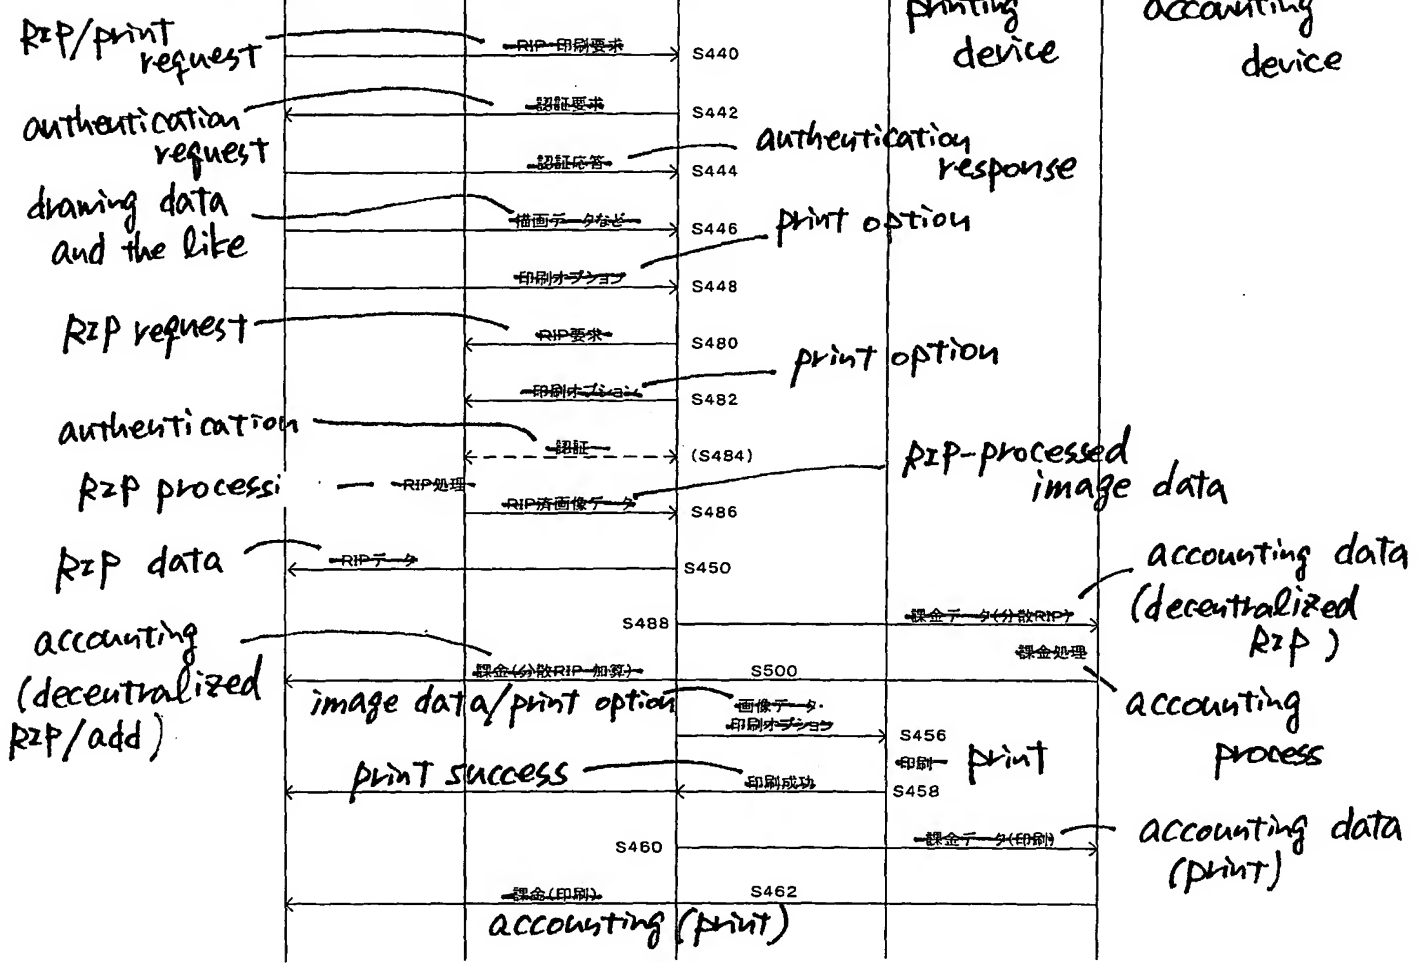 printing
device
accounting
device
RIP/print
request
RIP・印刷要求
S440
authentication
request
認証要求
S442
認証応答
S444
authentication
response
drawing data
and the like
描画データなど
S446
print option
印刷オプション
S448
RIP request
RIP要求
S480
print option
印刷オプション
S482
authentication
認証
(S484)
RIP processi
RIP処理
RIP済画像データ
S486
RIP-processed
image data
RIP data
RIPデータ
S450
S488
課金データ(分散RIP)
accounting data
(decentralized
RIP)
accounting
(decentralized
RIP/add)
課金(分散RIP・加算)
S500
課金処理
accounting
process
image data/print option
画像データ・
印刷オプション
S456
印刷
print
print success
印刷成功
S458
S460
課金データ(印刷)
accounting data
(print)
課金(印刷)
S462
accounting (print)